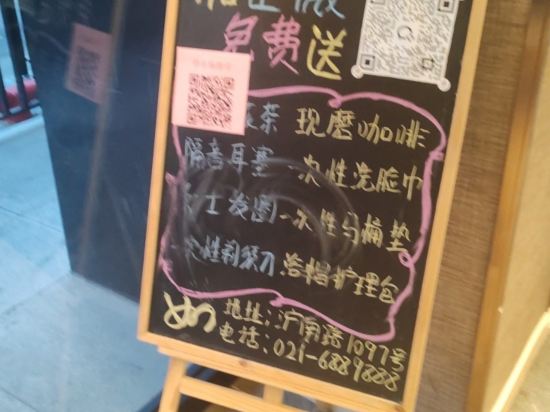 加企微
免费送
茶 现磨咖啡
隔音耳塞 一次性洗脸巾
女士发圈 一次性马桶垫
一次性剃须刀 浴帽护理包
地址:沪南路1097号
电话:021-6889888